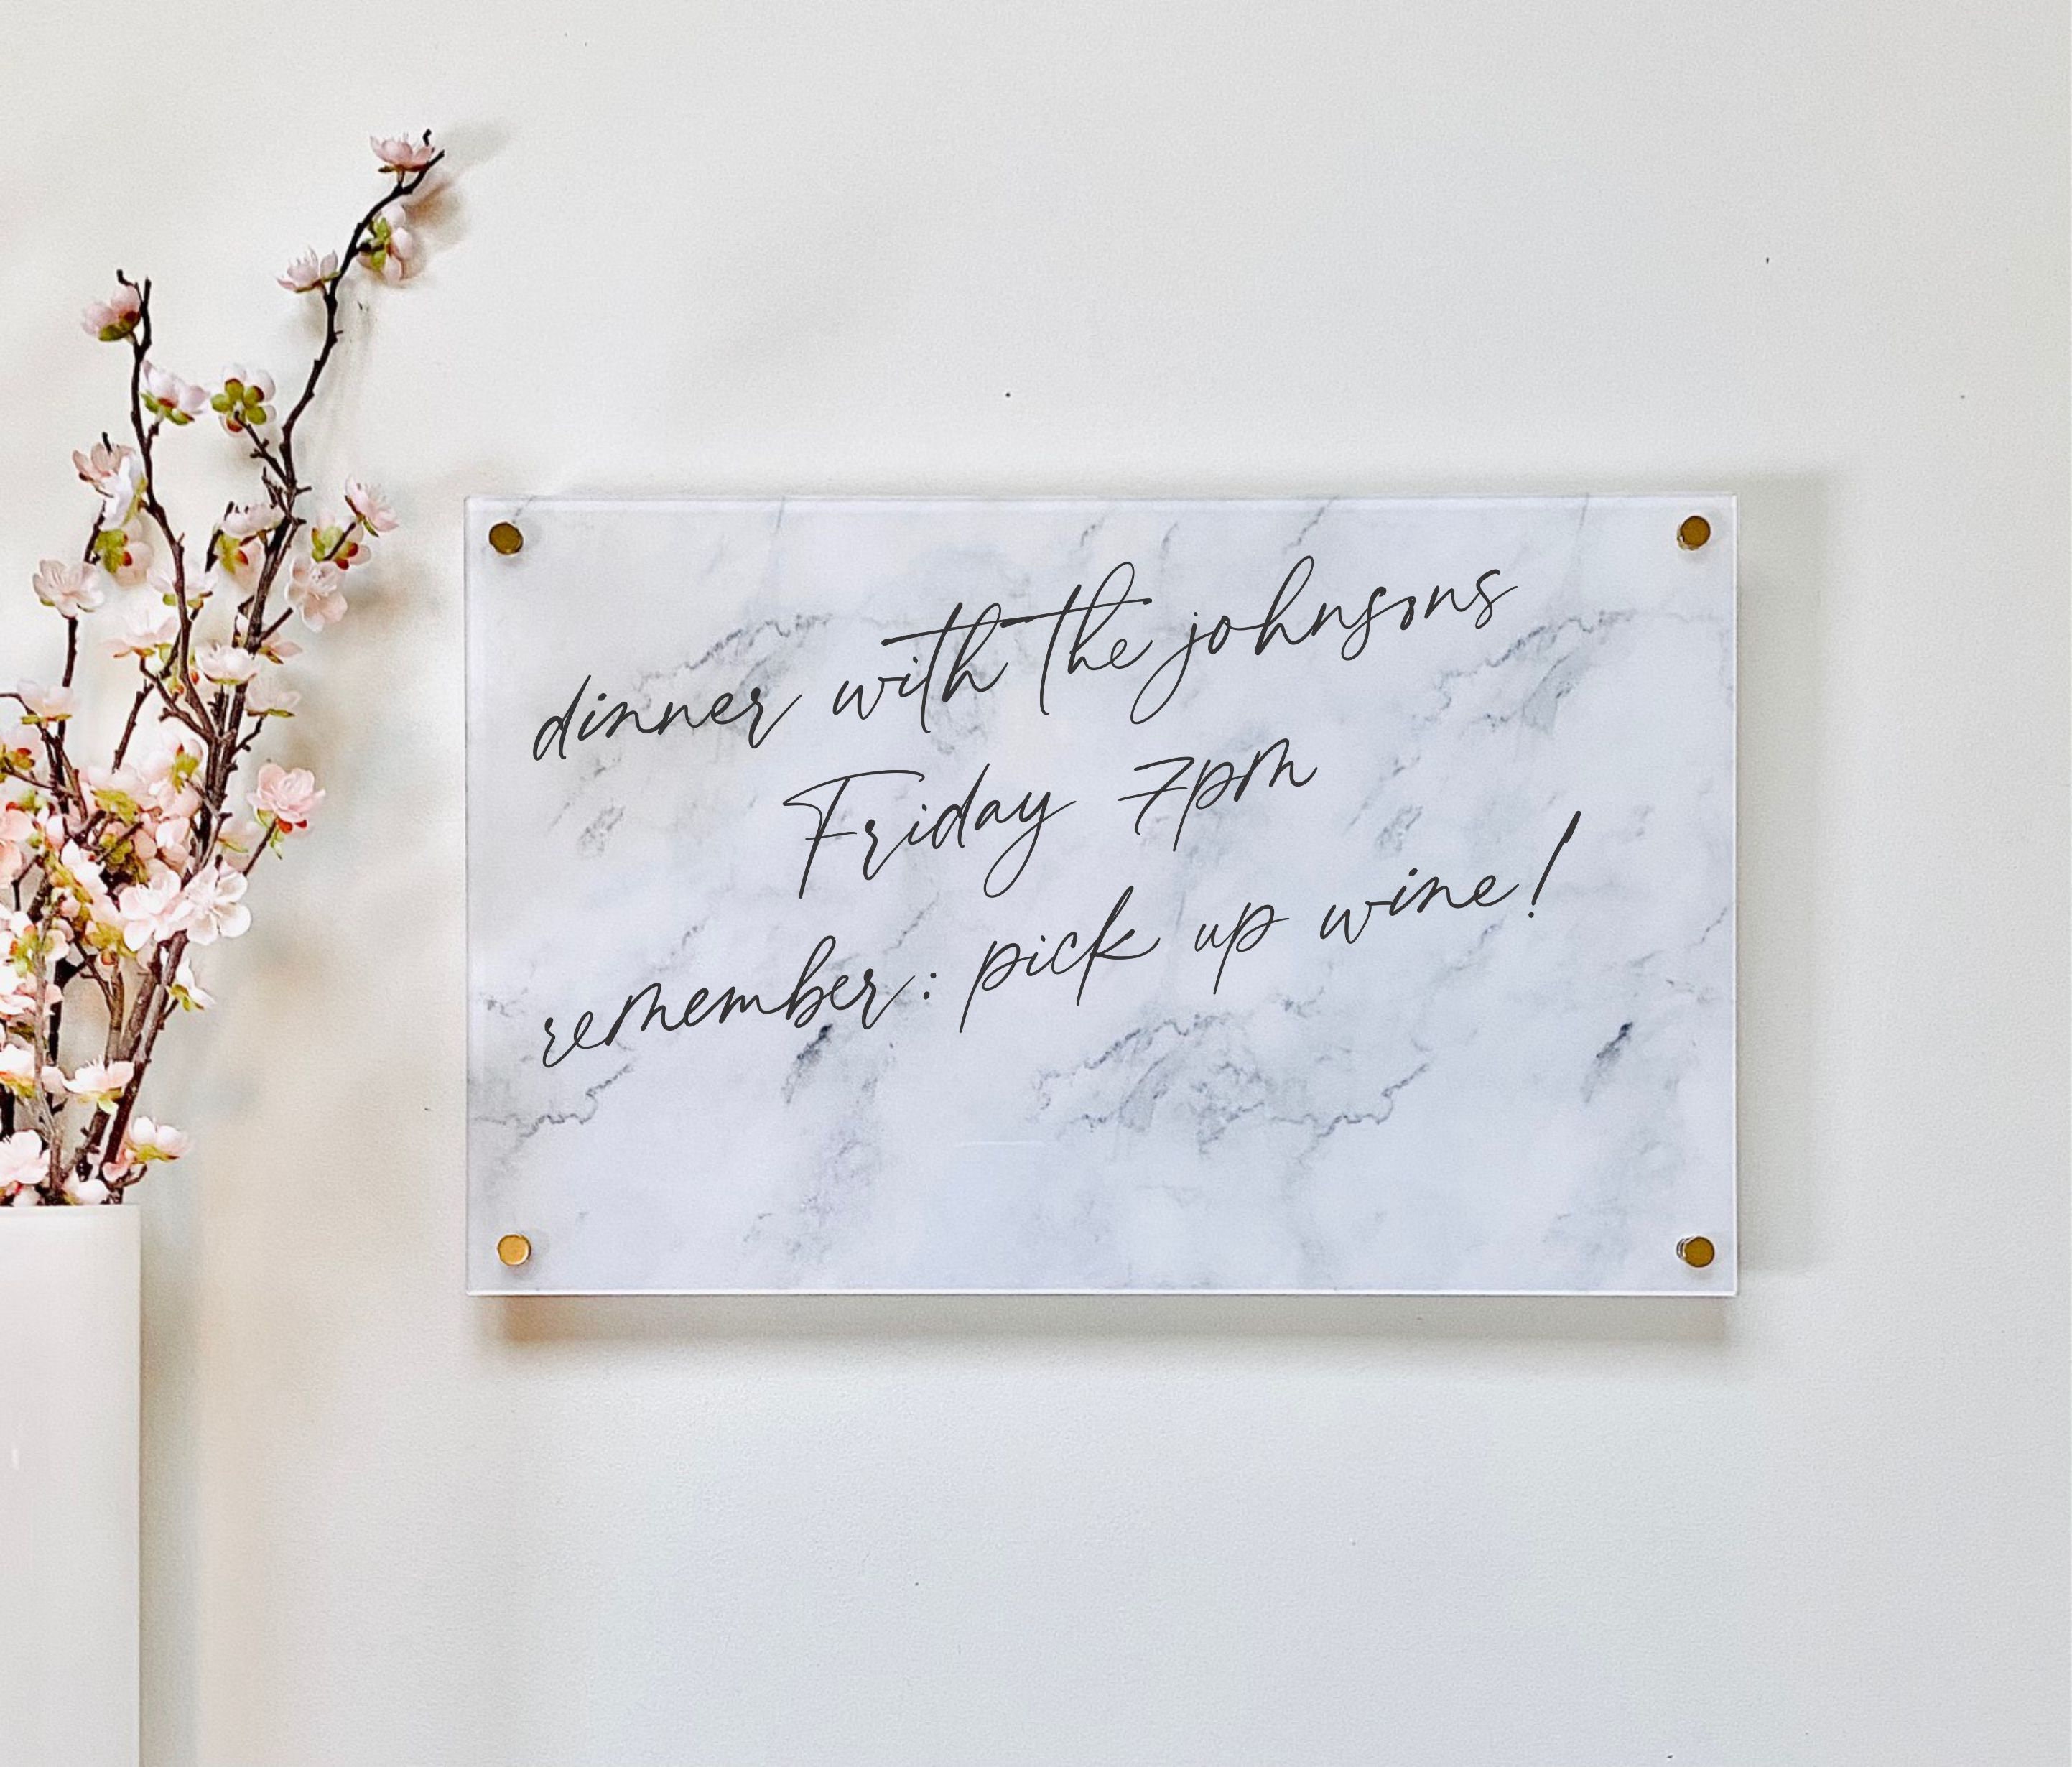 dinner with the johnsons
Friday 7pm
remember: pick up wine!